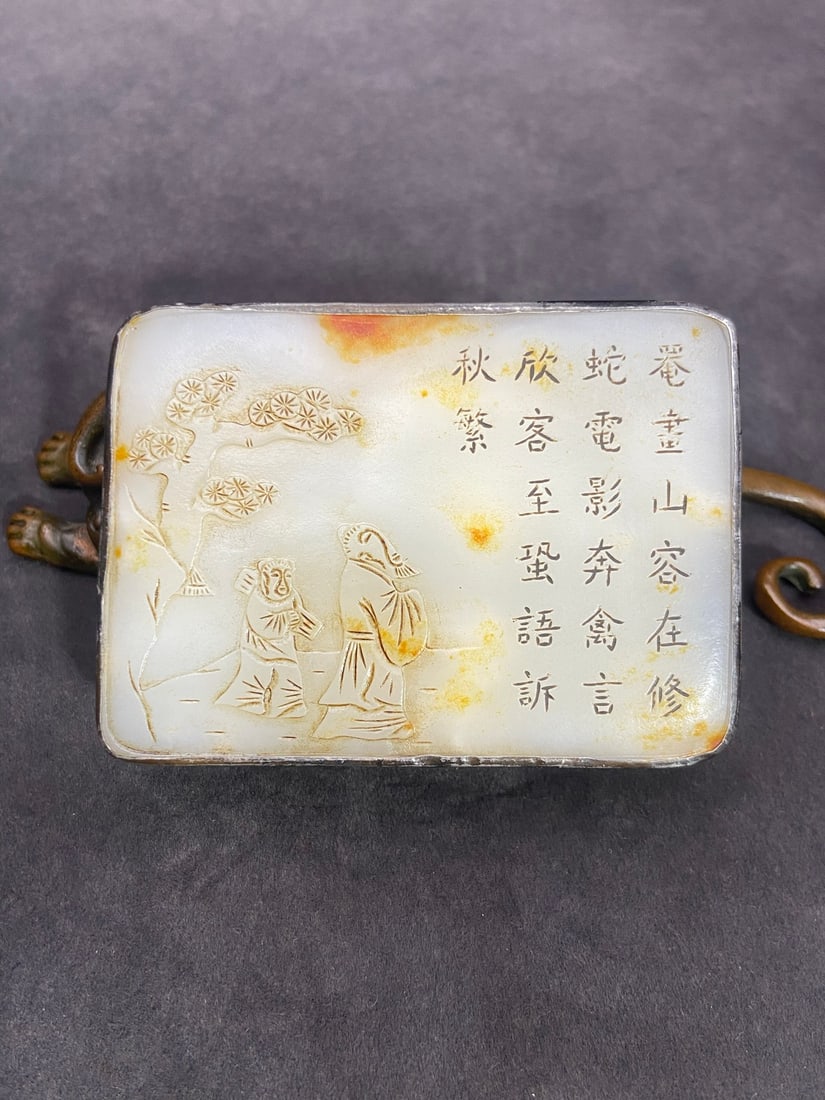 罨畫山容在修
蛇電影奔禽言
欣客至蛩語訴
秋繁